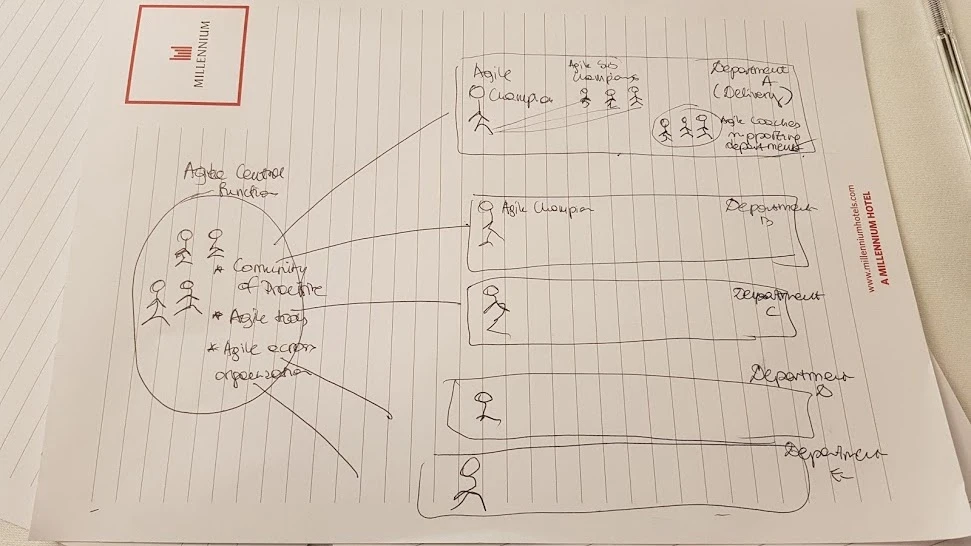 MILLENNIUM
Agile Central
Function
* Comunity
of Practice
* Agile tools
* Agile across
organization
Agile
Champion
Agile Sub
Champions
Department
A
(Delivery)
Agile Coaches
supporting
department
Agile Champion
Department
B
Department
C
Department
D
Department
E
www.millenniumhotels.com
A MILLENNIUM HOTEL